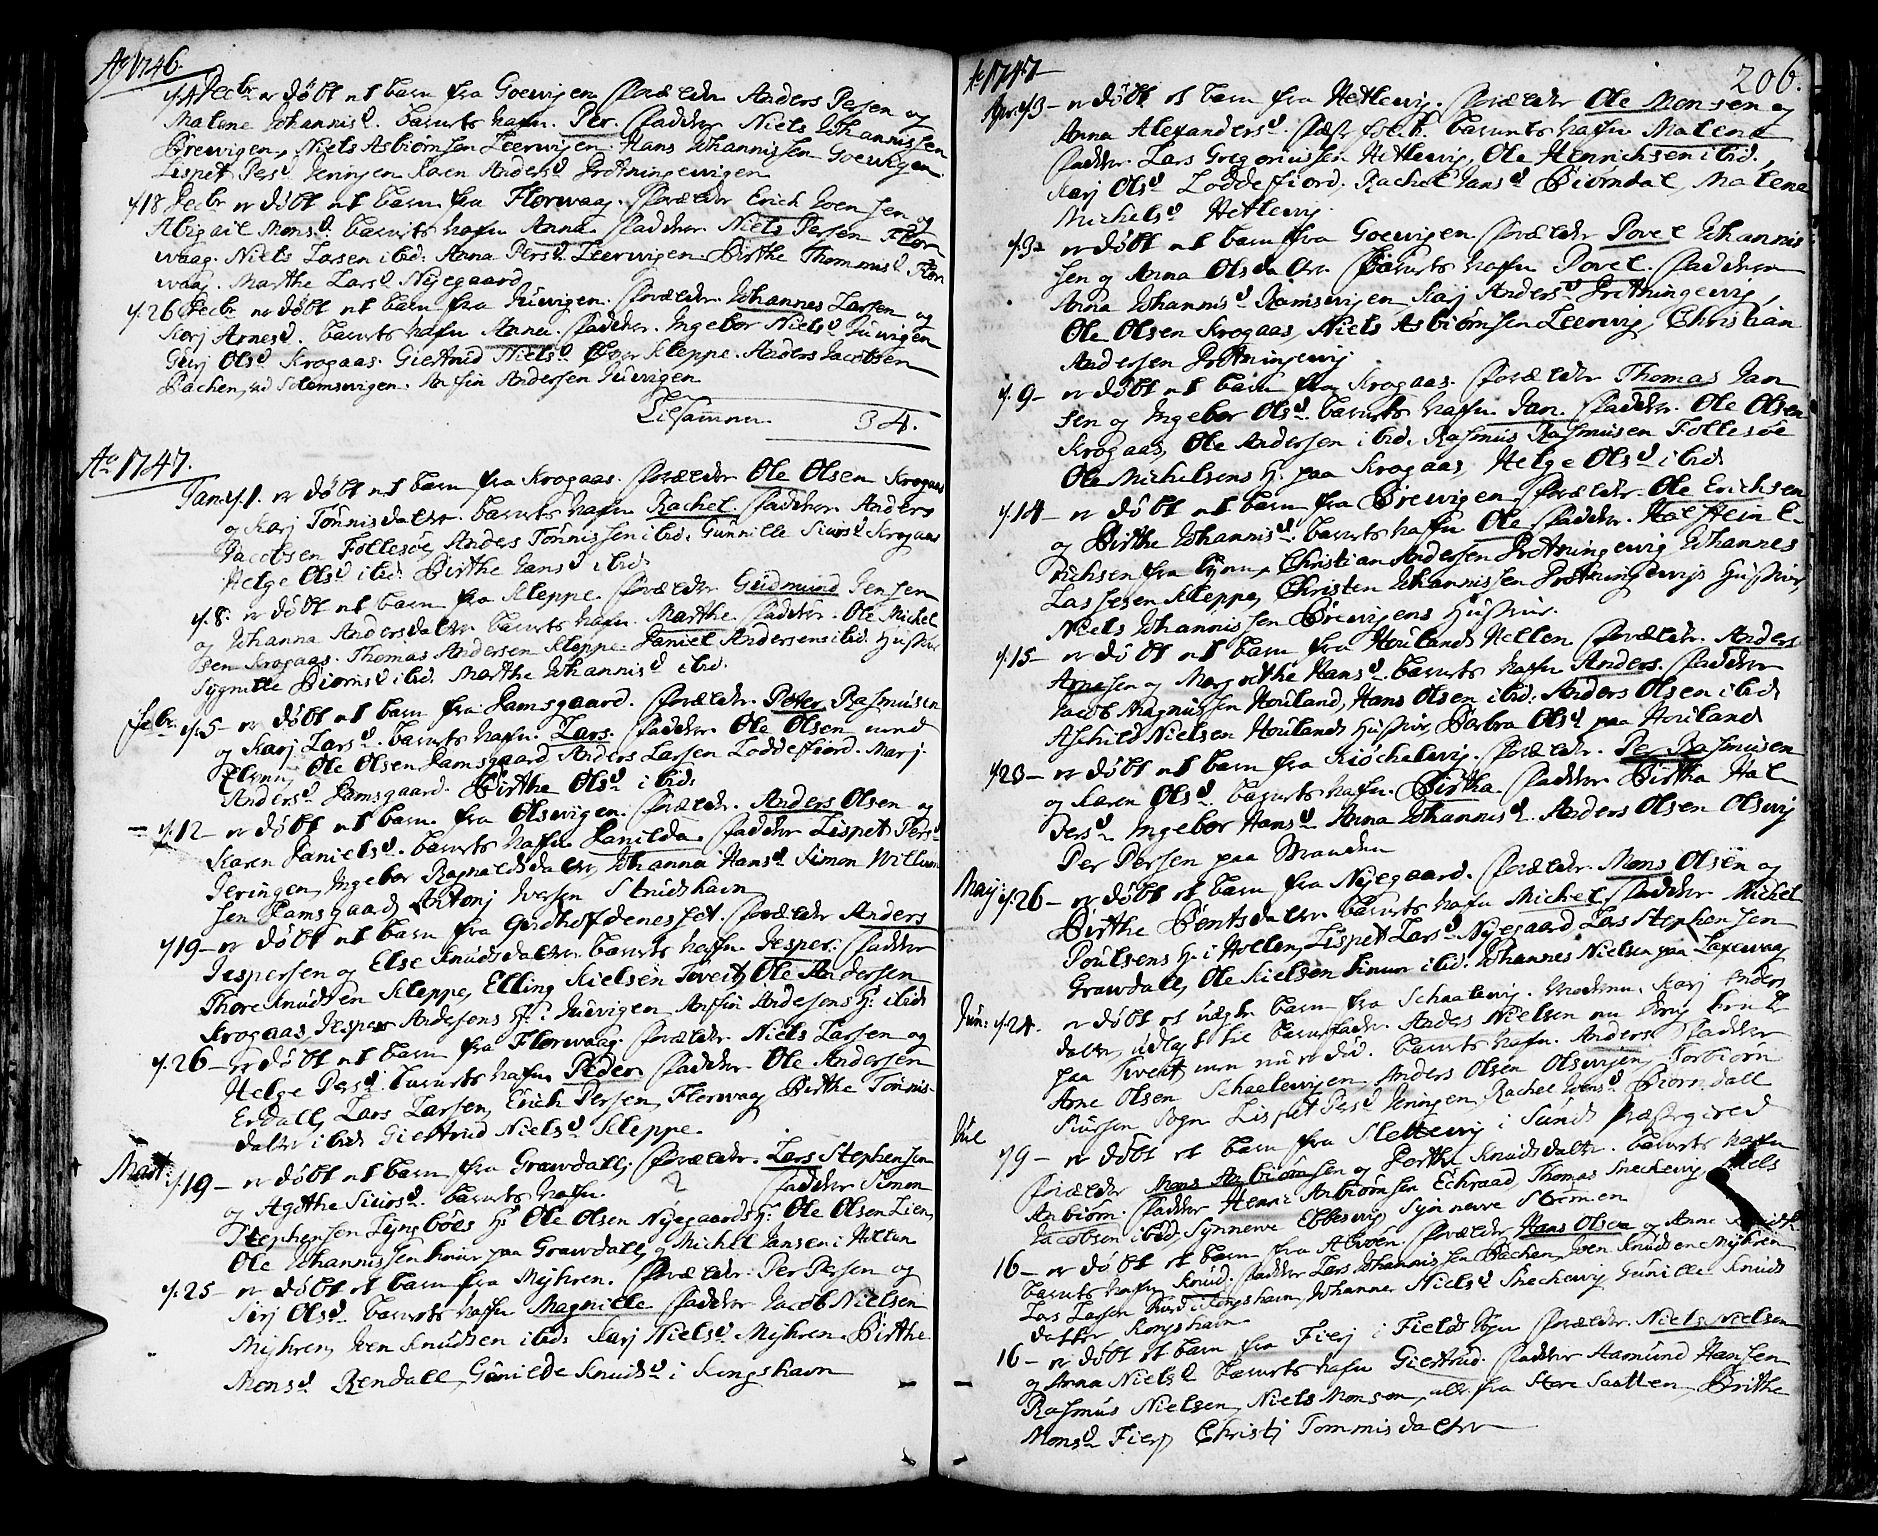 Ao 1746.
y. 4 Decbr er døbt et barn fra Goewigen forældr Anders Persen og
Malene Johannisd. barnets nafn. Per. fadder Niels Johannissen
Brewigen, Niels Asbiørnsen Leerwigen. Hans Johannissen Goewigen
Lispet Persd Karen Andersd Drotningewigen
y. 18 Decbr er døbt et barn fra Florwaag. forældr Erich Joensen og
Abigail Monsd. barnets nafn Anna. fadder Niels Persen Flor
waag. Niels Larsen ibid: Anna Persd Leerwigen Birthe Thommisd Flor
waag. Marthe Larsd Nyegaard
y. 26 Decbr er døbt et barn fra Juwigen. forældr. Johannes Larsen og
Karj Arnesd. barnets nafn Anna. fadder. Ingebor Nielsd Juwigen
Gurj Olsd Krogaas. Giertrud Nielsd Kleppe. Anders Jacobsen
Bachen, ved Solemswigen. Ansin Andersen Juwigen
Tilsammen 34.
Ao 1747.
Jan: y. 1. er døbt et barn fra Krogaas. forældr Ole Olsen Krogaas
og Karj Tønnisdatter barnets nafn Rachel. fadder Anders
Jacobsen Follesøe, Anders Tønnissen ibid: Gunnille Siursd Krogaas
Helge Olsd ibid: Birthe Jansd ibid.
y. 8. er døbt et barn fra Kleppe. forældr Gudmund Jensen
og Johanna Andersdatter barnets nafn. Marthe fadder. Ole Michel
sen Krogaas. Thomas Andersen Kleppe. Daniel Andersens ibid Hustrue
Sygnille Biørnsd ibid. Marthe Johannisd ibid.
Febr. y. 5 - er døbt et barn fra Damsgaard. forældr. Peter Rasmusen
og Karj Larsd. barnets nafn. Lars. fadder. Ole Olsen
Ole Olsen Damsgaard Anders Larsen Loddefiord. Marj.
Andersd Damsgaard. Birthe Olsd ibid.
- y. 12 - er døbt et barn fra Olswigen. forældr. Anders Olsen og
Karen Danielsd. barnets nafn Danilda. fadder Lispet Persd
Jeringen, Ingebor Ragnaldsdatter, Johanna Hansd Simon Willum
sen Damsgaard, Antonj Iwersen Strudshavn
y. 19 - er døbt et barn fra forældr Anders
Jespersen og Else Knudsdatter barnets nafn. Jesper. fadder
Thore Knudsen Kleppe, Elling Nielsen Tweit, Ole Andersen
Krogaas, Jesper Andersens H: i Juwigen Ansin Andersens H: ibid
y. 26 - er døbt et barn fra Florwaag. forældr. Niels Larsen og
Helge Persd. barnets nafn Peder fadder Ole Andersen
Erdall, Lars Larsen, Erich Persen, Florwaag Birthe Tønnis-
datter ibid Giertrud Nielsd Kleppe.
Mart: y. 19 - er døbt et barn fra Grawdall, forældr. Lars Stephensen
og Agothe Siursd. barnets nafn. ? fadder Simon
Stephensen Lyngbøes H: Ole Olsen Nyegaards H: Ole Olsen Lien,
Ole Johannissen paa Grawdall, og Michel Jansen i Hollen
y. 25 - er døbt et barn fra Myhren. forældr. Per Persen og
Sirj Olsd barnets nafn Magnille fadder Jacob Nielsen
Myhren, Iwen Knudsen ibid. Karj Nielsd Myhren. Birthe
Monsd Rendall, Gunilde Knudsd i Kongshavn
Ao 1747
206.
Apr: y. 3 - er døbt et barn fra Hetlewig. forældr Ole Monsen og
Anna Alexandersd. barnets nafn Malena
fadder. Lars Gregoriussen Hetlewig, Ole Henrichsen ibid.,
Karj Olsd Loddefiord. Rachel Jansd Biørndal, Malena
Michelsd Hetlewig
y. 3. er døbt et barn fra Goewigen forældr Povel Johannis
sen og Anna Olsdatter. Barnets nafn Povel. fadder
Anna Johannisd Ramswigen Karj Andersd Drotningewig,
Ole Olsen Krogaas, Niels Asbiørnsen Leerwig, Christian
Andersen Drotningewig
y. 9 - er døbt et barn fra Krogaas. forældr Thomas Jan
sen og Ingebor Olsd. barnets nafn. Jan. fadder. Ole Olsen
Krogaas, Ole Andersen ibid. Rasmus Rasmusen Follesøe
Ole Michelsens H: paa Krogaas, Helge Olsd ibid
y. 14 - er døbt et barn fra Brewigen forældr. Ole Erichsen
og Birthe Johannisd. barnets nafn Ole fadder. Halstein E-
richsen fra Christian Andersen Drotningewig Johannes
Lassesen Kleppe, Christen Johannissen Drotningewigs Hustrue,
Niels Johannissen Brewigens Hustrue.
y. 15 - er døbt et barn fra Houlands Hellen forældr. Anders
Arnesen og Margrethe Hansd. barnets nafn Anders. fadder
Jacob Magnussen Houland, Hans Olsen ibid: Anders Olsen ibid
Aschild Nielsen Houlands Hustrue, Barbra Olsd paa Houland
y. 23 - er døbt et barn fra Kiøchelewig. forældr. Per Rasmusen
og Karen Olsd. barnets nafn. Birtha. fadder Birtha Hal
Persd Ingebor Hansd Anna Johannisd. Anders Olsen Olswig
Per Persen paa Stranden
Maj: y. 26 - er døbt et barn fra Nyegaard. forældr. Mons Olsen og
Birthe Bentsdatter. barnets nafn Michel, fadder Michel
Poulsens H: i Hollen, Lispet Larsd Nyegaard Lars Stephensen
Grawdall, Ole Nielsen ibid. Johannes Nielsen paa Laxewaag
Jun: y. 24. er døbt et uægte barn fra Schaalewig. Moderen. Karj Anders
datter, udlagt til barnefader. Anders Nielsen en
paa Tweit som nu er død. barnets nafn. Anders fadder
Arne Olsen Schaalewigen Anders Olsen Olswigen, Torbiørn
Siursen Sogn Lispet Persd Jeringen, Rachel Iwersd Biørndall
Jul y. 9 - er døbt et barn fra Slettewig i Sunds Præstegield
forældr Mons Asbiørnsen og Dorthe Knudsdatter. barnets nafn
Anbiørn. fadder Henric Anbiørnsen Echraad, Thomas Snechewig Niels
Jacobsen ibid, Synnewe Ebbeswig, Synnewe Strømen
16 - er døbt et barn fra Abroen. forældr Hans Olsen og Anne
barnets nafn Knud. fadder Lars Johannissen Bachen, Iwen Knudsen Myhren
Lars Larsen Kongshavn, Johanna Nielsd Snechewig Gunille Knuds
datter Kongshavn
16 - er døbt et barn fra Fierj i Fields Sogn forældr. Niels Nielsen
og Anna Nielsd barnets nafn Giertrud. fadder Aamund Hansen
Rasmus Nielsen, Niels Monsen, alle fra Store Saatten, Birthe
Monsd Fierj Christj Tommisdatter